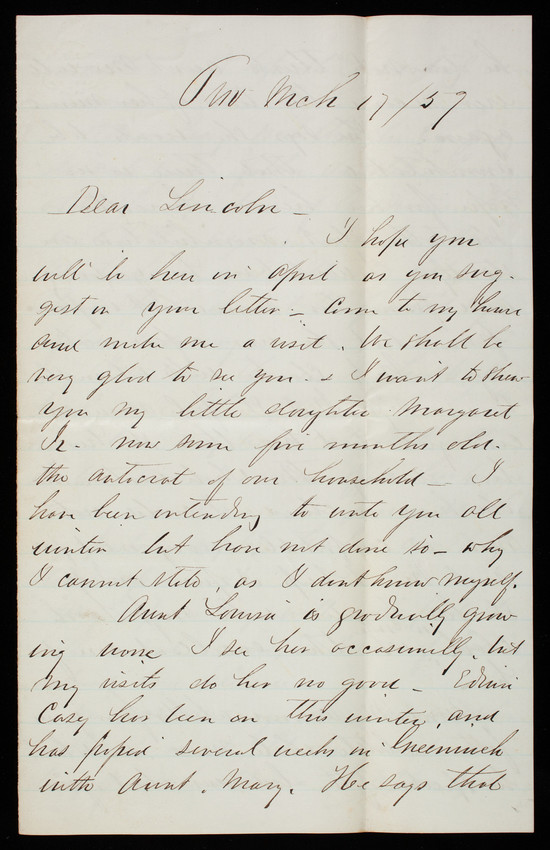 Prov Mch 17/59
Dear Lincoln -
I hope you
will be here in April as you sug-
gest in your letter - Come to my house
and make me a visit. We shall be
very glad to see you - & I want to show
you my little daughter Margaret
Jr. now some five months old -
the autocrat of our household - I
have been intending to write you all
winter but have not done so - why
I cannot state, as I dont know myself.
Aunt Louisa is gradually grow
ing worse I see her occasionally, but
my visits do her no good - Edwin
Casey has been on this winter, and
has passed several weeks in Greenwich
with Aunt Mary. He says that